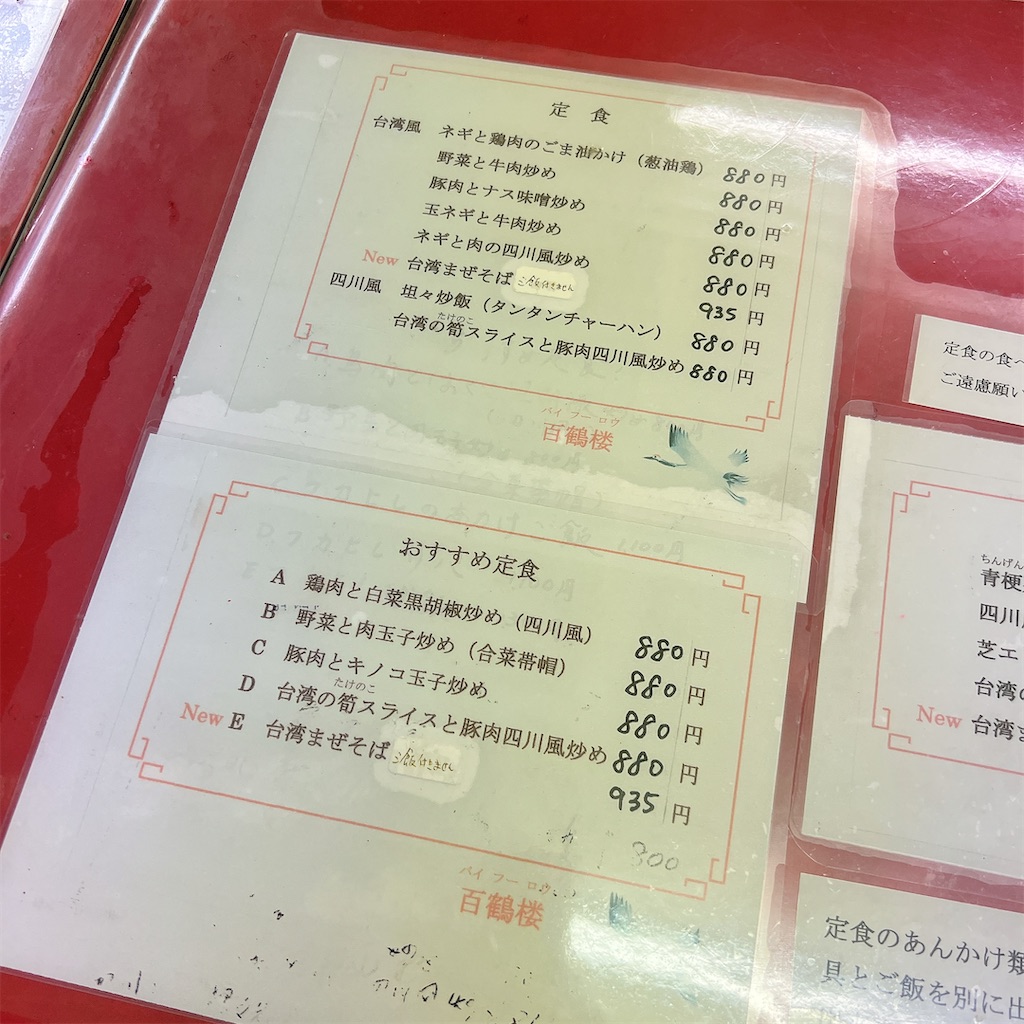 定食
台湾風 ネギと鶏肉のごま油かけ（葱油鶏） 880円
野菜と牛肉炒め 880円
豚肉とナス味噌炒め 880円
玉ネギと牛肉炒め 880円
ネギと肉の四川風炒め 880円
New 台湾まぜそば ご飯付きません 935円
四川風 坦々炒飯（タンタンチャーハン） 880円
たけのこ
台湾の筍スライスと豚肉四川風炒め 880円
バイ フー ロウ
百鶴楼
おすすめ定食
A 鶏肉と白菜黒胡椒炒め（四川風） 880円
B 野菜と肉玉子炒め（合菜帯帽） 880円
C 豚肉とキノコ玉子炒め 880円
たけのこ
D 台湾の筍スライスと豚肉四川風炒め 880円
New E 台湾まぜそば ご飯付きません 935円
800
バイ フー ロウ
百鶴楼
定食の食べ
ご遠慮願い
ちんげん
青梗
四川
芝エ
台湾の
New 台湾ま
定食のあんかけ類
具とご飯を別に出